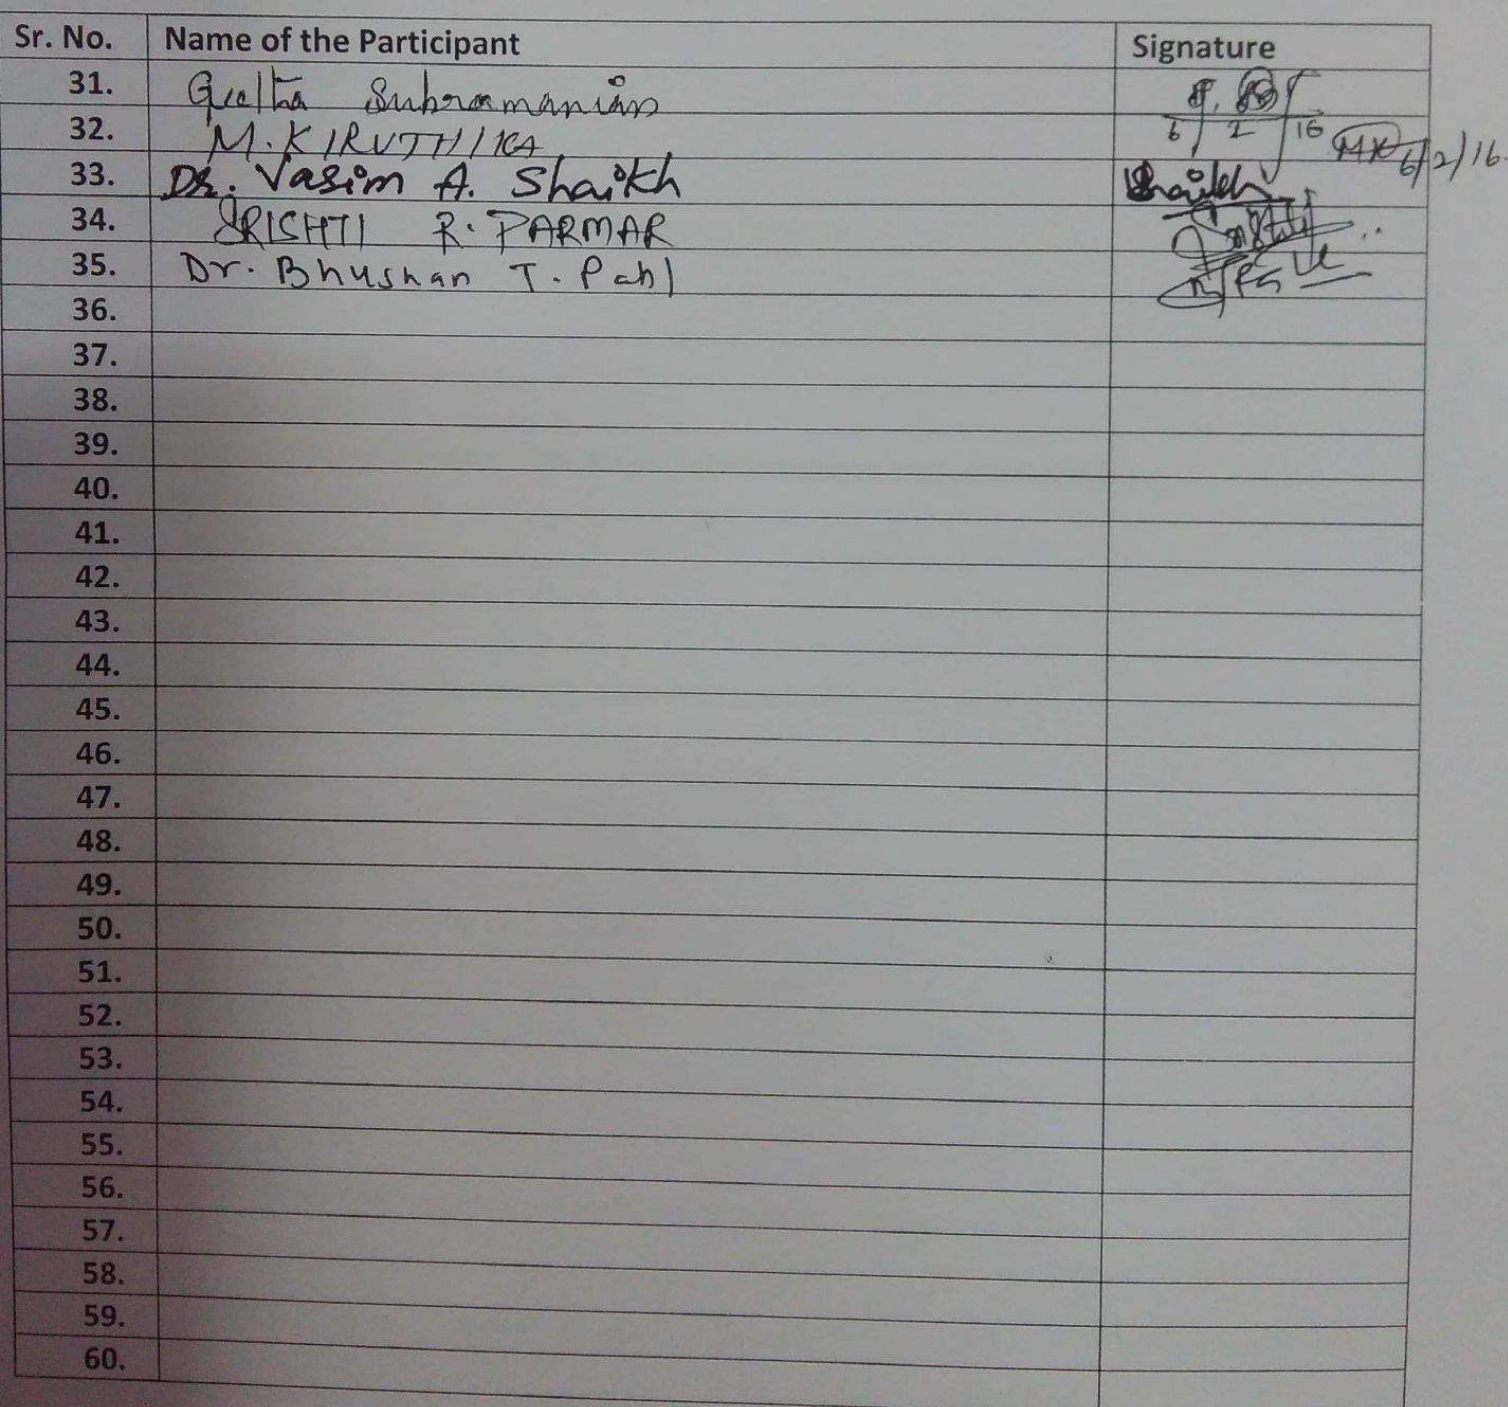 Sr. No. Name of the Participant Signature
31. Geetha Subramanian 6/2/16
32. M. KIRUTHIKA MK 6/2/16
33. Dr. Vasim A. Shaikh Shaikh
34. SRISHTI R. PARMAR
35. Dr. Bhushan T. Patil
36.
37.
38.
39.
40.
41.
42.
43.
44.
45.
46.
47.
48.
49.
50.
51.
52.
53.
54.
55.
56.
57.
58.
59.
60.